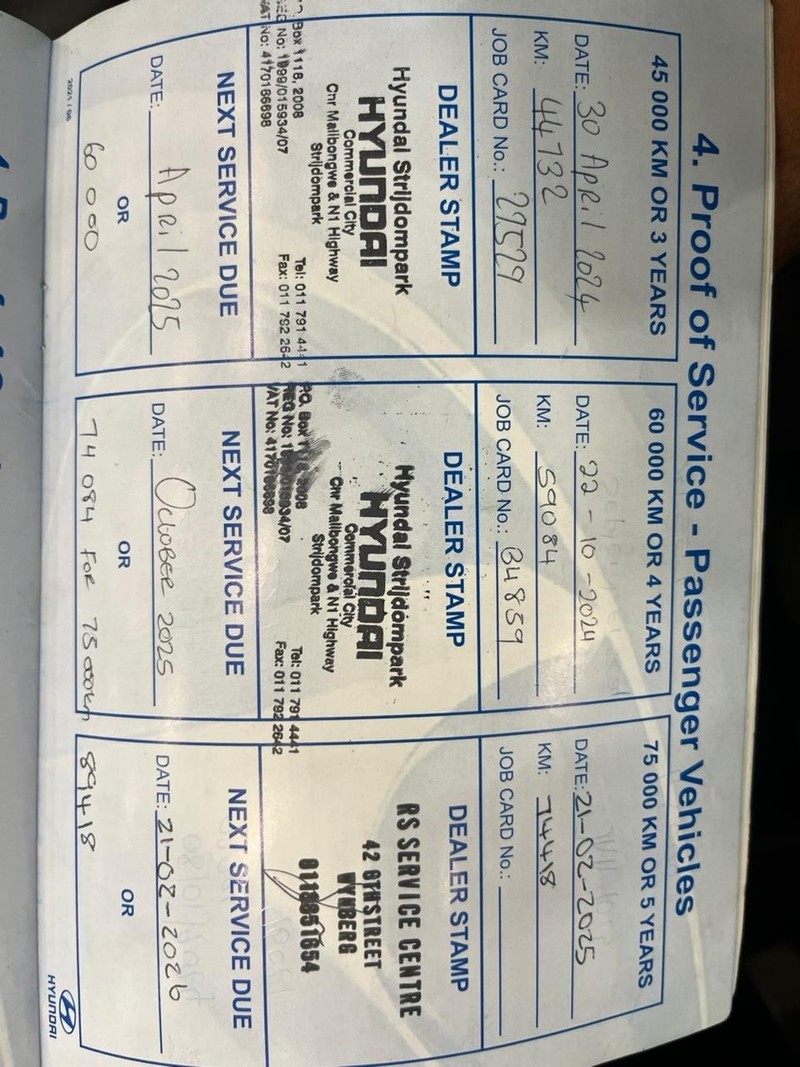 4. Proof of Service - Passenger Vehicles
45 000 KM OR 3 YEARS
DATE: 30 April 2024
KM: 44732
JOB CARD No.: 29529
DEALER STAMP
Hyundai Strijdompark
HYUNDAI
Commercial City
Cnr Malibongwe & N1 Highway
Strijdompark
Tel: 011 791 4441
Fax: 011 792 2642
Box 1118, 2008
No: 1999/015934/07
VAT No: 4170186698
NEXT SERVICE DUE
DATE: April 2025
OR
60 000
2021 / 06
60 000 KM OR 4 YEARS
DATE: 22-10-2024
KM: 59084
JOB CARD No.: B4859
DEALER STAMP
Hyundai Strijdompark
HYUNDAI
Commercial City
Cnr Malibongwe & N1 Highway
Strijdompark
Tel: 011 791 4441
Fax: 011 792 2642
P.O. Box 2008
REG No: 015934/07
VAT No: 4170186698
NEXT SERVICE DUE
DATE: October 2025
OR
74 084 FOR 75 000km
75 000 KM OR 5 YEARS
DATE: 21-02-2025
KM: 74418
JOB CARD No.:
DEALER STAMP
RS SERVICE CENTRE
42 6TH STREET
WYNBERG
0118851654
NEXT SERVICE DUE
DATE: 21-02-2026
OR
89418
HYUNDAI